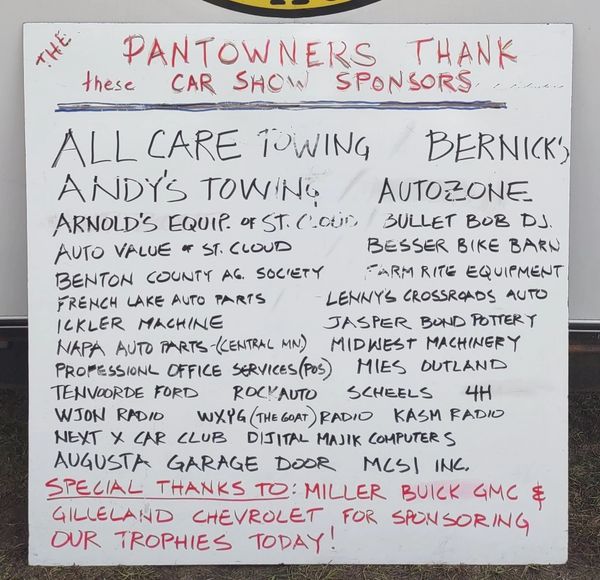 THE PANTOWNERS THANK
these CAR SHOW SPONSORS
ALL CARE TOWING BERNICK'S
ANDY'S TOWING AUTOZONE
ARNOLD'S EQUIP. OF ST. CLOUD BULLET BOB D.J.
AUTO VALUE OF ST. CLOUD BESSER BIKE BARN
BENTON COUNTY AG. SOCIETY FARM RITE EQUIPMENT
FRENCH LAKE AUTO PARTS LENNY'S CROSSROADS AUTO
ICKLER MACHINE JASPER BOND POTTERY
NAPA AUTO PARTS-(CENTRAL MN) MIDWEST MACHINERY
PROFESSIONL OFFICE SERVICES (POS) MIES OUTLAND
TENVOORDE FORD ROCKAUTO SCHEELS 4H
WJON RADIO WXYG (THE GOAT) RADIO KASM RADIO
NEXT X CAR CLUB DIJITAL MAJIK COMPUTERS
AUGUSTA GARAGE DOOR MCSI INC.
SPECIAL THANKS TO: MILLER BUICK GMC &
GILLELAND CHEVROLET FOR SPONSORING
OUR TROPHIES TODAY!